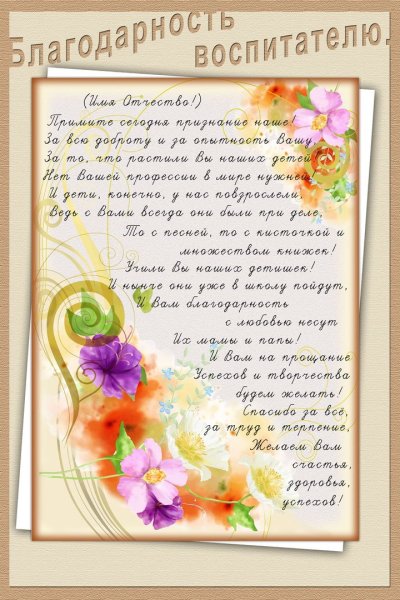 Благодарность
воспитателю.
(Имя Отчество!)
Примите сегодня признание наше!
За всю доброту и за опытность Вашу,
За то, что растили Вы наших детей
Нет Вашей профессии в мире нужней!
И дети, конечно, у нас повзрослели,
Ведь с Вами всегда они были при деле,
То с песней, то с кисточкой и
множеством книжек!
Учили Вы наших детишек!
И нынче они уже в школу пойдут,
И Вам благодарность
с любовью несут
Их мамы и папы!
И Вам на прощание
Успехов и творчества
будем желать!
Спасибо за всё,
за труд и терпение,
Желаем Вам
счастья,
здоровья,
успехов!